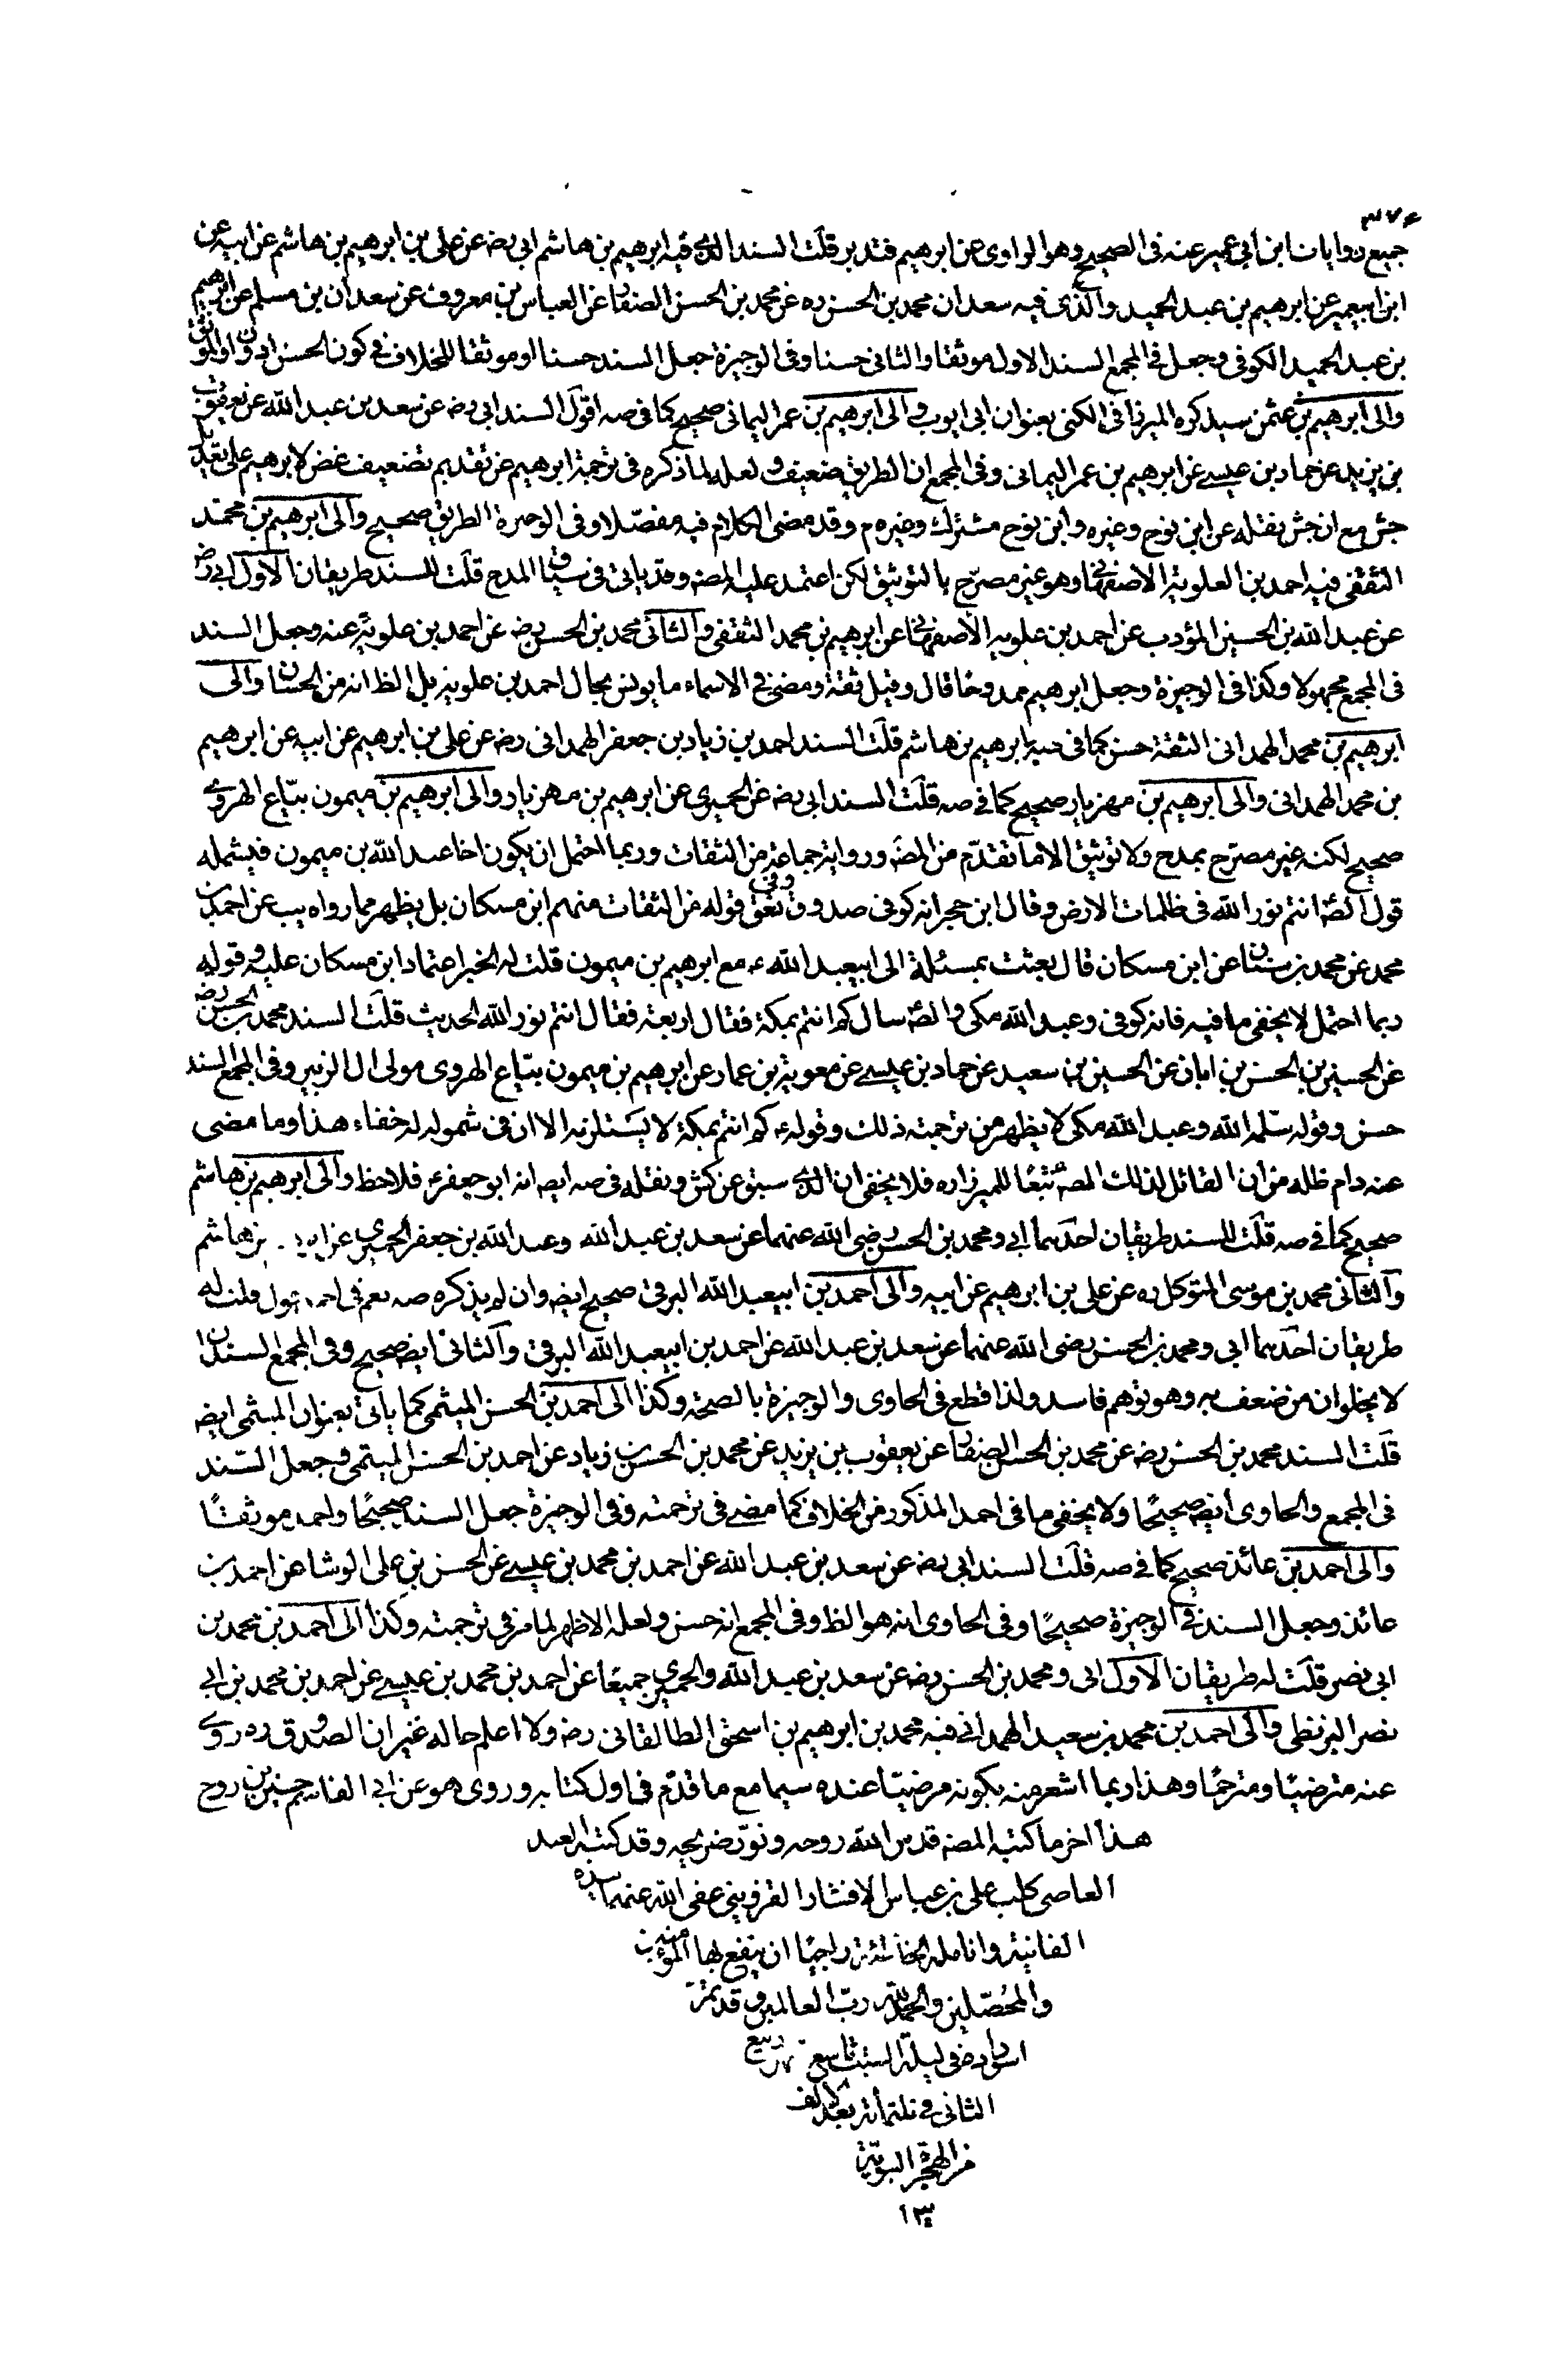 ٣٧۶
جميع روايات ابن ابي عمير عنه في الصحيح وهو الراوى عن ابرهيم فتدبر قلت السند الذى فيه ابرهيم بن هاشم ابي رضه عن علي بن ابرهيم بن هاشم عن ابيه عن
ابن ابيعمير عن ابرهيم بن عبد الحميد والذى فيه سعدان محمد بن الحسن ره عن محمد بن الحسن الصفار عن العباس بن معروف عن سعدان بن مسلم عن ابرهيم
بن عبد الحميد الكوفى وجعل في المجمع السند الاول موثقا والثانى حسنا وفى الوجيزة جعل السند حسنا او موثقا للخلاف في كون الحسن ادون او الموثق
والى ابرهيم بن عثمن سيذكره الميرزا فى الكنى بعنوان ابى ايوب والى ابرهيم بن عمر اليمانى صحيح كما فى صه اقول السند ابى رضه عن سعد بن عبد الله عن يعقوب
بن يزيد عن حماد بن عيسى عن ابرهيم بن عمر اليمانى وفى المجمع ان الطريق ضعيف ولعله لما ذكره فى ترجمة ابرهيم من تقديم تضعيف غض لابرهيم على تعديل
جش مع ان جش نقله عن ابن نوح وغيره وابن نوح مشترك وغيره م وقد مضى الكلام فيه مفصلا وفى الوجيزة الطريق صحيح والى ابرهيم بن محمد
الثقفى فيه احمد بن العلوية الاصفهانى وهو غير مصرح بالتوثيق لكن اعتمد عليه المصه وقد ياتى فى سياق المدح قلت للسند طريقان الاول ابى رض
عن عبد الله بن الحسين المؤدب عن احمد بن علويه الاصفهانى عن ابرهيم بن محمد الثقفى والثانى محمد بن الحسن رضه عن احمد بن علوية عنه وجعل السند
فى المجمع مجهولا وكذا فى الوجيزة وجعل ابرهيم ممدوحا قال وقيل ثقة ومضى في الاسماء ما يونس بحال احمد بن علويه بل الظ انه من الحسان والى
ابرهيم بن محمد الهمدانى الثقة حسن كما فى صه ابرهيم بن هاشم قلت السند احمد بن زياد بن جعفر الهمدانى رضه عن علي بن ابرهيم عن ابيه عن ابرهيم
بن محمد الهمدانى والى ابرهيم بن مهزيار صحيح كما فى صه قلت السند ابى رضه عن الحميرى عن ابرهيم بن مهزيار والى ابرهيم بن ميمون بياع الهروى
صحيح لكنه غير مصرح بمدح ولا توثيق الا ما تقدم من المصه ورواية جماعة من الثقات وربما احتمل ان يكون اخا عبد الله بن ميمون فيشمله
قول الصه انتم نور الله فى ظلمات الارض وقال ابن حجر انه كوفى صدوق وفى تعق قوله من الثقات منهم ابن مسكان بل يظهر مما رواه يب عن احمد بن
محمد عن محمد بن سنان عن ابن مسكان قال بعثت بمسئلة الى ابيعبد الله ع مع ابرهيم بن ميمون قلت له الخبر اعتماد ابن مسكان عليه وقوله
ربما احتمل لا يخفى ما فيه فانه كوفى وعبد الله مكى والصه سال كم انتم بمكة فقال اربعة فقال انتم نور الله الحديث قلت السند محمد بن الحسن رض
عن الحسين بن الحسن بن ابان عن الحسين بن سعيد عن حماد بن عيسى عن معوية بن عمار عن ابرهيم بن ميمون بياع الهروى مولى ال الزبير وفى المجمع السند
حسن وقوله سلمه الله وعبد الله مكى لا يظهر من ترجمته ذلك وقوله ع كم انتم بمكة لا يستلزمه الا ان فى شموله له خفاء هذا وما مضى
عنه دام ظله من ان القائل لذلك المصه تبعا للميرزا ره فلا يخفى ان الذى سبق عن كش ونقله فى صه ايضه انه ابو جعفر ع فلاحظ والى ابرهيم بن هاشم
صحيح كما فى صه قلت للسند طريقان احدهما ابى ومحمد بن الحسن رضى الله عنهما عن سعد بن عبد الله وعبد الله بن جعفر الحميرى عن ابرهيم بن هاشم
والثانى محمد بن موسى المتوكل ره عن على بن ابرهيم عن ابيه والى احمد بن ابيعبد الله البرقى صحيح ايضه وان لم يذكره صه نعم فى احمد قلت له
طريقان احدهما ابى ومحمد بن الحسن رضى الله عنهما عن سعد بن عبد الله عن احمد بن ابيعبد الله البرقى والثانى ايضه صحيح وفى المجمع السندان
لا يخلوان من ضعف به وهو توهم فاسد ولذا قطع فى الحاوى والوجيزة بالصحة وكذا الى احمد بن الحسن الميثمى كما ياتى بعنوان الميثمى ايضه
قلت السند محمد بن الحسن رضه عن محمد بن الحسن الصفار عن يعقوب بن يزيد عن محمد بن الحسن بن زياد عن احمد بن الحسن الميثمى وجعل السند
فى المجمع والحاوى ايضه صحيحا ولا يخفى ما فى احمد المذكور من الخلاف كما مضى فى ترجمته وفى الوجيزة جعل السند صحيحا واحمد موثقا
والى احمد بن عائذ صحيح كما فى صه قلت السند ابى رضه عن سعد بن عبد الله عن احمد بن محمد بن عيسى عن الحسن بن على الوشا عن احمد بن
عائذ وجعل السند فى الوجيزة صحيحا وفى الحاوى انه هو الظ وفى المجمع انه حسن ولعله الاظهر لما مر فى ترجمته وكذا الى احمد بن محمد بن
ابى نصر قلت له طريقان الاول ابى ومحمد بن الحسن رضه عن سعد بن عبد الله والحميرى جميعا عن احمد بن محمد بن عيسى عن احمد بن محمد بن ابى
نصر البزنطى والى احمد بن محمد بن سعيد الهمدانى فيه محمد بن ابرهيم بن اسحق الطالقانى رضه ولا اعلم حاله غير ان الصدوق ره روى
عنه مترضيا ومترحما وهذا ربما اشعر منه بكونه مرضيا عنده سيما مع ما قدم فى اول كتابه وروى هو عن ابى القاسم حسين بن روح
هذا اخر ما كتبه المصه قدس الله روحه ونور ضريحه وقد كتبه العبد
العاصى كلب على بن عباس الافشار القزوينى عفى الله عنهما بيده
الفانية وانامله الخاطئة راجيا ان ينفع بها المؤمنين
والمحصلين والحمد لله رب العالمين وقد تمت
فى ليلة السبت تاسع ربيع
الثانى فى ثلثمأة بعد الالف
من الهجرة النبوية
١٣